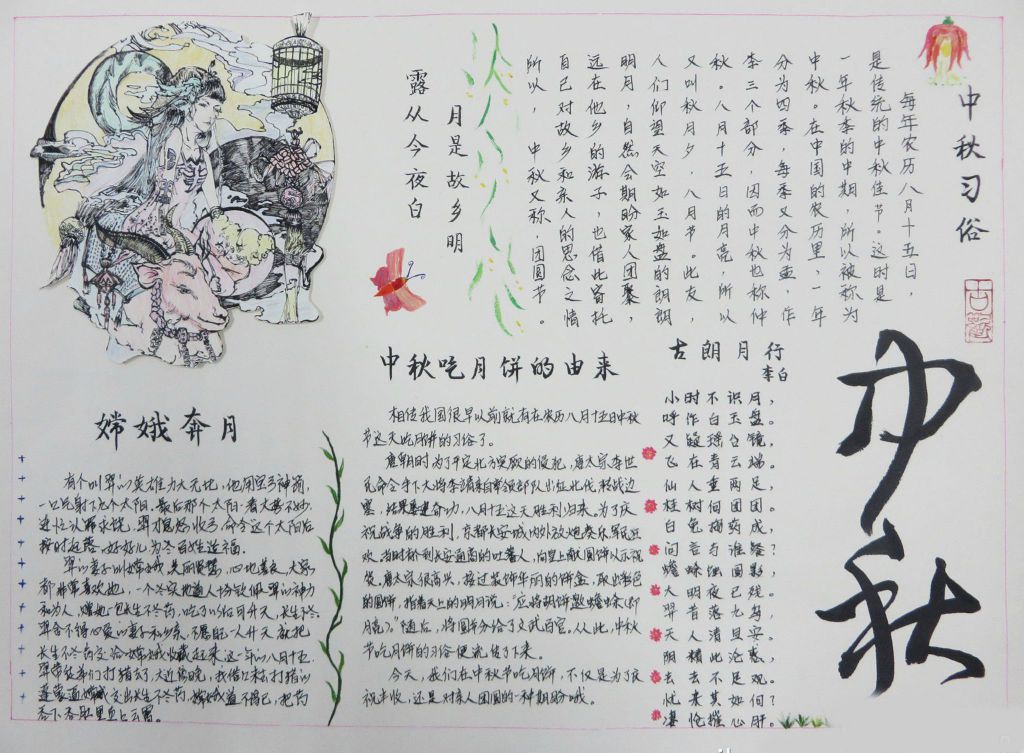 中秋习俗
每年农历八月十五日，
是传统的中秋佳节。这时是
一年秋季的中期，所以被称为
中秋。在中国的农历里，一年
分为四季，每季又分为孟，作
季三个部分，因而中秋也称仲
秋。八月十五日的月亮，所以
又叫秋月夕，八月节。此友，
人们仰望天空如玉如盘的朗朗
明月，自然会期盼家人团聚，
远在他乡的游子，也借此寄托
自己对故乡和亲人的思念之情
所以，中秋又称，团圆节。
月是故乡明
露从今夜白
中秋
中秋吃月饼的由来
相传我国很早以前就有在农历八月十五日中秋
节这天吃月饼的习俗了。
唐朝时为了平定北方突厥的侵犯，唐太宗李世
民命令手下大将李靖亲自率领部队出征北伐，转战边
塞，结果屡建奇功，八月十五这天胜利归来。为了庆
祝战争的胜利，京都长安城内外放炮奏乐，军民狂
欢。当时桥利长安通商的吐蕃人，向皇上献圆饼以示祝
贺。唐太宗很高兴，接过装饰华丽的饼盒，取出彩色
的圆饼，指着天上的明月说："应将胡饼邀蟾蜍（即
月亮）。"随后，将圆饼分给了文武百官。从此，中秋
节吃月饼的习俗便流传了下来。
今天，我们在中秋节吃月饼，不仅是为了庆
祝丰收，还是对亲人团圆的一种期盼哦。
古朗月行
李白
小时不识月，
呼作白玉盘。
又疑瑶台镜，
飞在青云端。
仙人垂两足，
桂树何团团。
白兔捣药成，
问言与谁餐？
蟾蜍蚀圆影，
大明夜已残。
羿昔落九乌，
天人清且安。
阴精此沦惑，
去去不足观。
忧来其如何？
凄怆摧心肝。
嫦娥奔月
有个叫羿的英雄力大无比，他用宝弓神箭，
一口气射下九个太阳。最后那个太阳一看大势不妙，
连忙认罪求饶，羿才息怒收弓，命令这个太阳后
按时起落，好好儿为老百姓造福。
羿的妻子叫嫦娥，美丽贤慧，心地善良，大家
都非常喜欢她，一个
长生不老药交给嫦娥收藏起来。这一年的八月十五，
羿带徒弟们打猎去了，天近傍晚，